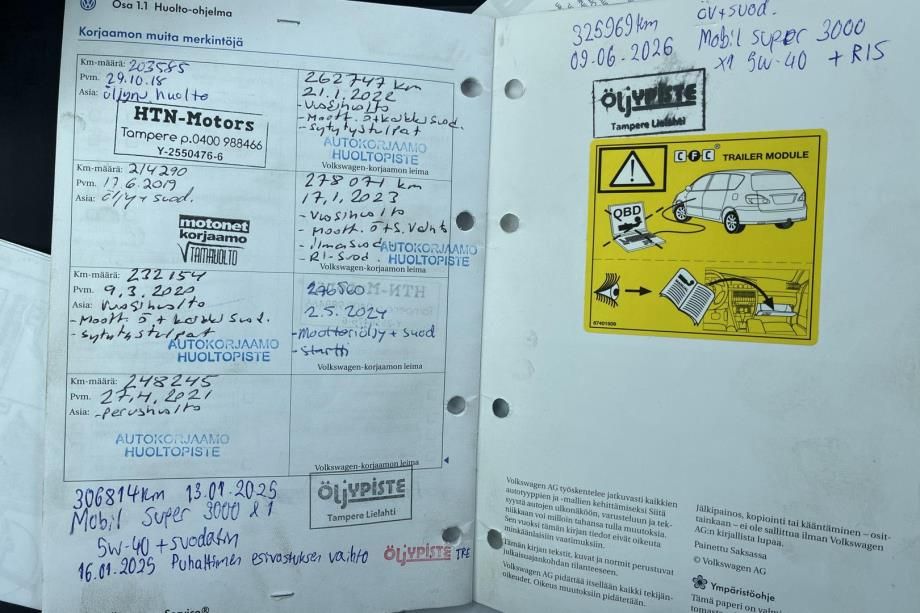 Osa 1.1 Huolto-ohjelma
Korjaamon muita merkintöjä
Km-määrä: 203585
Pvm. 29.10.18
Asia: öljyn huolto
HTN-Motors
Tampere p.0400 988466
Y-2550476-6
262747 km
21.1.2022
- Vuosihuolto
- Moott. ö + kaikki suod.
- Sytytystulpat
AUTOKORJAAMO
HUOLTOPISTE
Volkswagen-korjaamon leima
Km-määrä: 214290
Pvm. 17.6.2019
Asia: öljy + suod.
motonet
korjaamo
TAMAUOLTO
278071 km
17.1.2023
- Vuosihuolto
- Moott. ö + S. Vaihto
- ilmasuod
- RI-Suod.
AUTOKORJAAMO
HUOLTOPISTE
Volkswagen-korjaamon leima
Km-määrä: 232154
Pvm. 9.3.2020
Asia: Vuosihuolto
- Moott. ö + kaikki suod.
- Sytytystulpat
AUTOKORJAAMO
HUOLTOPISTE
2.5.2024
- Moottoriöljy + suod
- Startti
Volkswagen-korjaamon leima
Km-määrä: 248245
Pvm. 27.4.2021
Asia: - perushuolto
AUTOKORJAAMO
HUOLTOPISTE
Volkswagen-korjaamon leima
306814km 13.01.2025
Mobil Super 3000 x1
5w-40 + suodatin
16.01.2025 Puhaltimen esivastuksen vaihto
ÖljYPISTE
Tampere Lielahti
ÖljYPISTE TRE
325969km
09.06.2026
öv + suod.
Mobil super 3000
x1 5w-40 + R15
ÖljYPISTE
Tampere Lielahti
CFC TRAILER MODULE
QBD
67401509
Volkswagen AG työskentelee jatkuvasti kaikkien
autotyyppien ja -mallien kehittämiseksi Siitä
syystä autojen ulkonäköön, varusteluun ja tek-
niikkaan voi milloin tahansa tulla muutoksia.
Sen vuoksi tämän kirjan tiedot eivät oikeuta
minkäänlaisiin vaatimuksiin.
Tämän kirjan tekstit, kuvat ja normit perustuvat
julkaisuajankohdan tilanteeseen.
Volkswagen AG pidättää itsellään kaikki tekijän-
oikeudet. Oikeus muutoksiin pidätetään.
Jälkipainos, kopiointi tai kääntäminen - osit-
tainkaan - ei ole sallittua ilman Volkswagen
AG:n kirjallista lupaa.
Painettu Saksassa
© Volkswagen AG
Ympäristöohje
Tämä paperi on valmi